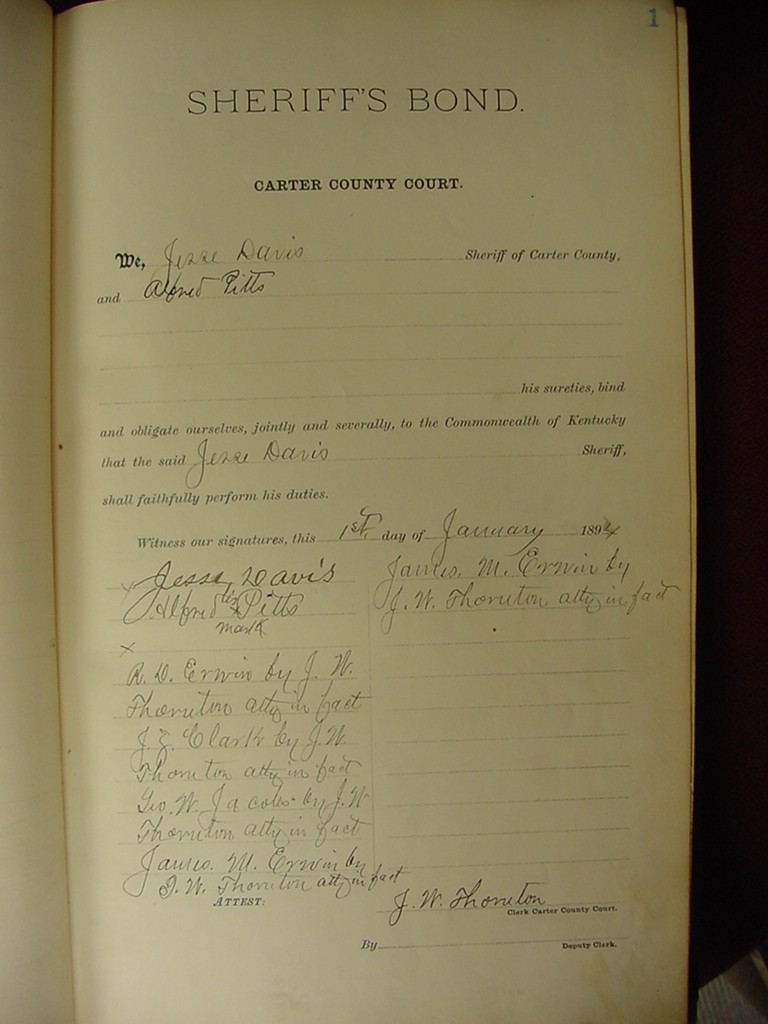 1
SHERIFF'S BOND.
CARTER COUNTY COURT.
We, Jesse Davis Sheriff of Carter County,
and Alfred Pitts
his sureties, bind
and obligate ourselves, jointly and severally, to the Commonwealth of Kentucky
that the said Jesse Davis Sheriff,
shall faithfully perform his duties.
Witness our signatures, this 1st day of January 189
Jesse Davis
Alfred his x Pitts
mark
x
R. D. Erwin by J. W.
Thornton atty in fact
J. Z. Clark by J. W.
Thornton atty in fact
Geo. W. Jacobs by J. W
Thornton atty in fact
James. M. Erwin by
J. W. Thornton atty in fact
James. M. Erwin by
J. W. Thornton atty in fact
ATTEST:
J. W. Thornton
Clerk Carter County Court.
By Deputy Clerk.